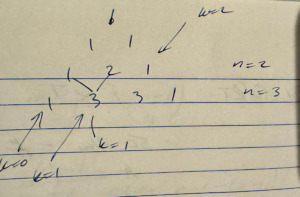 1 k=2
1 1
1 2 1 n=2
1 3 3 1 n=3
k=0 k=1 k=1